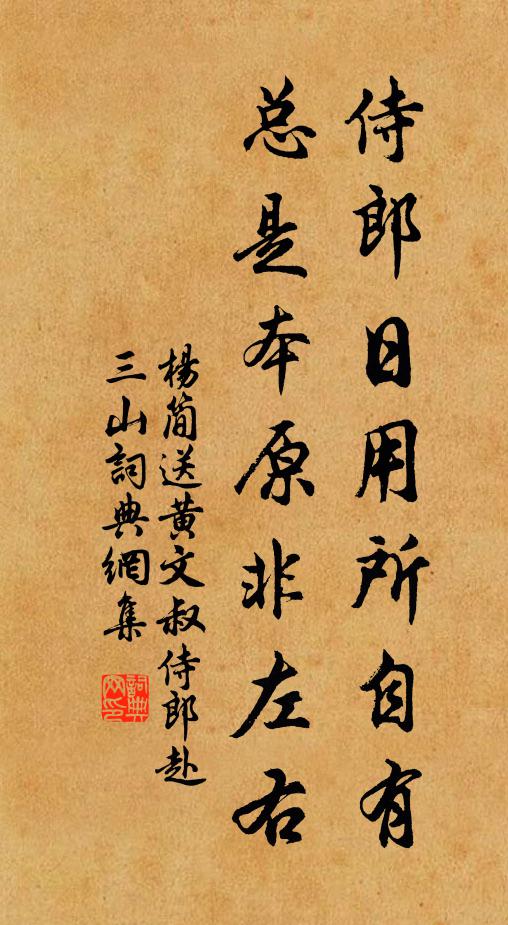 侍郎日用所自有
总是本原非左右
楊简送黄文叔侍郎赴
三山詞典網集
詞典
网印